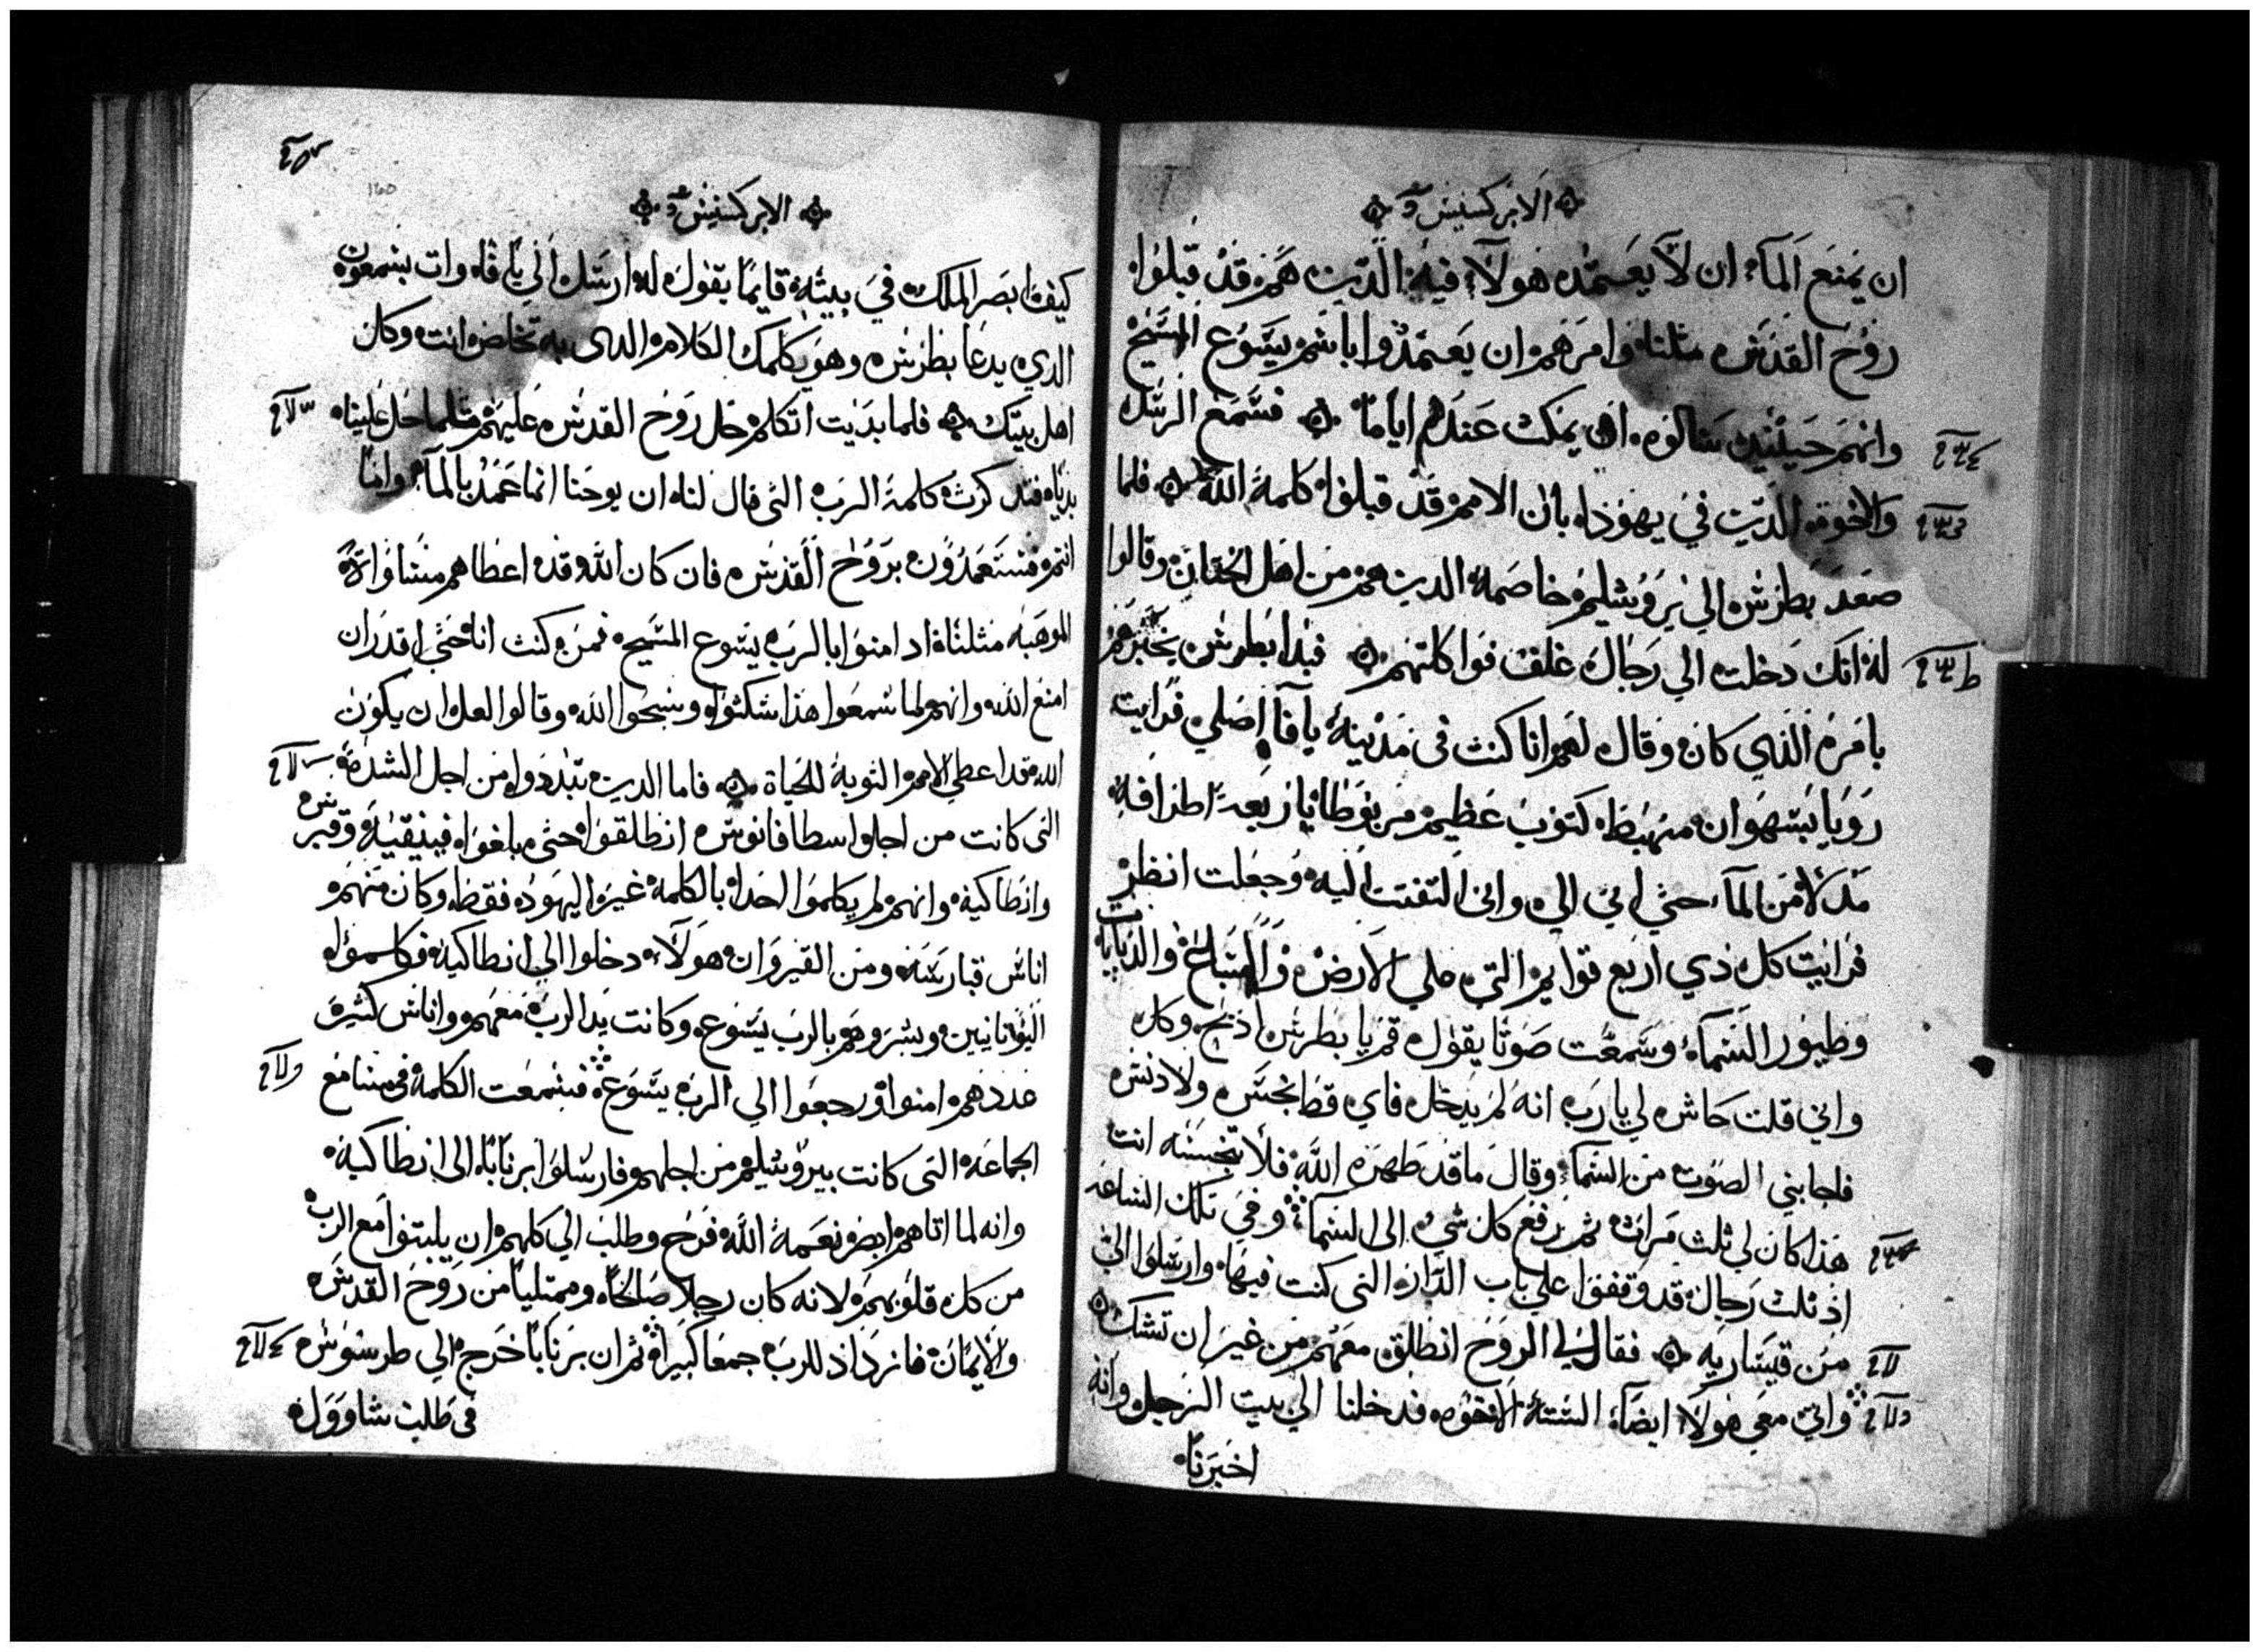 الابركسيس
ان يمنع المآء ان لا يعتمد هولآء فيه الدين هم قد قبلوا
روح القدس مثلنا وامرهم ان يعتمدوا باسم يسوع المسيح
وانهم حينيد سالوه ان يمكث عندهم اياما فسمع الرسل
والاخوة الدين في يهوذا بان الامم قد قبلوا كلمة الله فلما
صعد بطرس الي يروشليم خاصمه الدين هم من اهل الختان وقالوا
له انك دخلت الي رجال غلف فواكلتهم فبدا بطرس يخبرهم
بامره الذي كان وقال لهم انا كنت في مدينة يافا اصلي فرايت
رويا بتسهوان منهبط كتوب عظيم مربوطا باربعة اطرافه
مدلا من السمآء حتي اتي الي واني التفتت اليه وجعلت انظر
فرايت كل ذي اربع قوايم التي علي الارض والسباع والدبابات
وطيور السمآء وسمعت صوتا يقول قم يا بطرس اذبح وكل
واني قلت حاش لي يا رب انه لم يدخل فاي قط نجس ولا دنس
فاجابني الصوت من السمآء وقال ما قد طهره الله فلا تنجسه انت
هذا كان لي ثلث مرات ثم رفع كل شي الي السمآء وفي تلك الساعه
اذ ثلث رجال قد وقفوا علي باب الدار التي كنت فيها وارسلوا الي
من قيساريه فقال لي الروح انطلق معهم من غير ان تشك
واتي معي هولآ ايضا الستة الاخوه فدخلنا الي بيت الرجل وانه
اخبرنا
الابركسيس
كيف ابصر الملك في بيته قايما يقول له ارسل الي يافا وات بسمعون
الدي يدعا بطرس وهو يكلمك الكلام الدي به تخلص انت وكل
اهل بيتك فلما بديت اتكلم حل روح القدس عليهم مثلما حل علينا
بديا فتدكرت كلمة الرب التي قال لنا ان يوحنا انما عمد بالمآء واما
انتم فستعمدون بروح القدس فان كان الله قد اعطاهم مساواة
الموهبه مثلنا اد امنوا بالرب يسوع المسيح فمن كنت انا حتي اقدر ان
امنع الله وانهم لما سمعوا هذا سكتوا وسبحوا الله وقالوا لعل ان يكون
الله قد اعطي الامم التوبة للحياة فاما الدين تبددوا من اجل الشدة
التي كانت من اجل اسطافانوس انطلقوا حتي بلغوا فينيقية وقبرس
وانطاكية وانهم لم يكلموا احدا بالكلمة غير اليهود فقط وكان منهم
اناس قبارسة ومن القيروان هولآء دخلوا الي انطاكية فكلموا
اليونانيين وبشروهم بالرب يسوع وكانت يد الرب معهم واناس كثيرة
عددهم امنوا ورجعوا الي الرب يسوع فسمعت الكلمة في مسامع
الجماعة التي كانت بيروشليم من اجلهم فارسلوا برنابا الي انطاكية
وانه لما اتاهم ابصر نعمة الله فرح وطلب الي كلهم ان يلبتوا مع الرب
من كل قلوبهم لانه كان رجلا صالحا وممتليا من روح القدس
والايمان فازداد للرب جمعا كبيرا ثم ان برنابا خرج الي طرسوس
في طلب شاوول